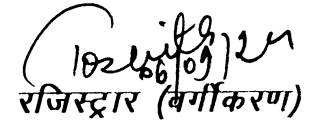 06/09/24
रजिस्ट्रार (वर्गीकरण)